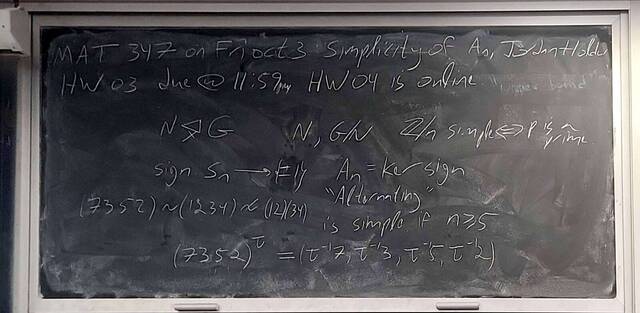 MAT 347 on Fri Oct 3 Simplicity of An, Jordan Holder
HW 03 due @ 11:59pm HW 04 is online "upper bound"
N ⊴ G N, G/N Z/n simple ⟺ P is a prime
sign Sn → {±1} An = ker sign
"Alternating"
(7352) ~ (1234) ≁ (12)(34)
is simple if n≥5
(7352)^τ = (τ⁻¹7, τ⁻¹3, τ⁻¹5, τ⁻¹2)